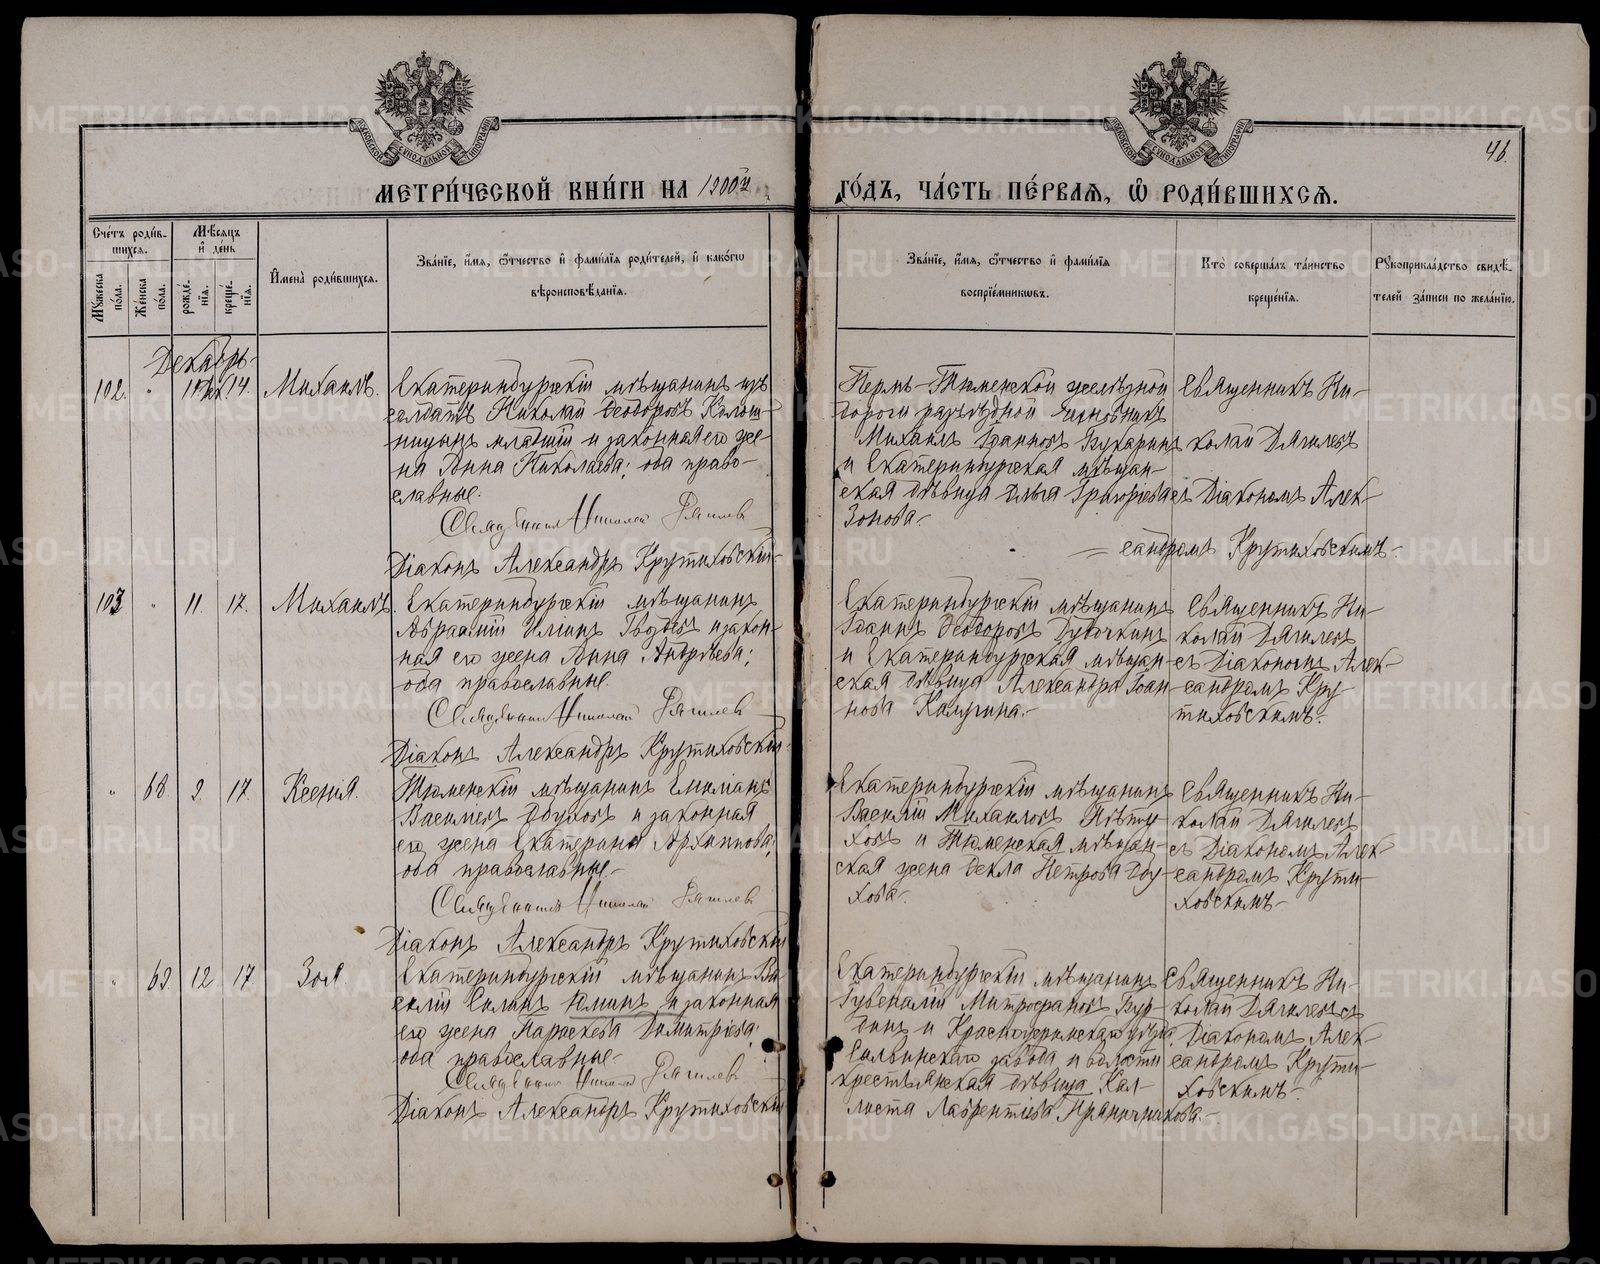 МЕТРИ́ЧЕСКОЙ КНИ́ГИ НА 1900й
ГО́ДЪ, ЧА́СТЬ ПЕ́РВАѦ, Ѡ҆ РОДИ́ВШИХСѦ.
46.
Сче́тъ роди́в-
шихсѧ.
Мꙋжеска по́ла.
Же́нска по́ла.
Мѣ́сѧцъ
и҆ де́нь
рожде́-
нїѧ.
креще́-
нїѧ.
И҆мена̀ роди́вшихсѧ.
Зва́нїе, и҆́мѧ, ѻ҆́тчество и҆ фами́лїѧ роди́телей, и҆ како́гѡ
вѣроисповѣ́данїѧ.
Зва́нїе, и҆́мѧ, ѻ҆́тчество и҆ фами́лїѧ
воспрїе́мникѡвъ.
Кто̀ соверша́лъ та́инство
креще́нїѧ.
Рꙋкоприкла́дство свидѣ́-
телей за́писи по жела́нїю.
Декабрь
102. " 14. Михаилъ.
Екатеринбургскій мѣщанинъ изъ
солдатъ Николай Ѳеодоровъ
младшій и законная его же-
на Анна Николаева; оба право-
славные.
Священникъ Николай Дягилевъ
Діаконъ Александръ Крутиховскій
Пермь-Тюменской желѣзной
дороги разъѣздной
Михаилъ Іоанновъ Бухаринъ
и Екатеринбургская мѣщан-
ская дѣвица Ольга Григорьева
Зонова.
Священникъ Ни-
колай Дягилевъ
съ Діакономъ Алек-
сандромъ Крутиховскимъ.
103 " 11. 17. Михаилъ.
Екатеринбургскій мѣщанинъ
Авраамій Ильинъ и закон-
ная его жена Анна Андреева;
оба православные.
Священникъ Николай Дягилевъ
Діаконъ Александръ Крутиховскій
Екатеринбургскій мѣщанинъ
Іоаннъ Ѳеодоровъ
и Екатеринбургская мѣщан-
ская дѣвица Александра Іоан-
нова Калугина.
Священникъ Ни-
колай Дягилевъ
съ Діакономъ Алек-
сандромъ Кру-
тиховскимъ.
" 68. 9. 17. Ксенія.
Тюменскій мѣщанинъ Емиліанъ
Васильевъ и законная
его жена Екатерина Архиппова;
оба православные.
Священникъ Николай Дягилевъ
Діаконъ Александръ Крутиховскій
Екатеринбургскій мѣщанинъ
Василій Михаиловъ Пѣту-
ховъ и Тюменская мѣщан-
ская жена Ѳекла Петрова
хова.
Священникъ Ни-
колай Дягилевъ
съ Діакономъ Алек-
сандромъ Крути-
ховскимъ.
" 69. 12. 17. Зоя.
Екатеринбургскій мѣщанинъ Ва-
силій и законная
его жена Параскева Димитріева;
оба православные.
Священникъ Николай Дягилевъ
Діаконъ Александръ Крутиховскій
Екатеринбургскій мѣщанинъ
Іувеналій Митрофановъ Бур-
динъ и Красноуфимскаго уѣзда
Сылвинскаго завода и волости
крестьянская дѣвица Кал-
листа Лаврентіева Пряничникова.
Священникъ Ни-
колай Дягилевъ съ
Діакономъ Алек-
сандромъ Крути-
ховскимъ.
METRIKI.GASO-URAL.RU